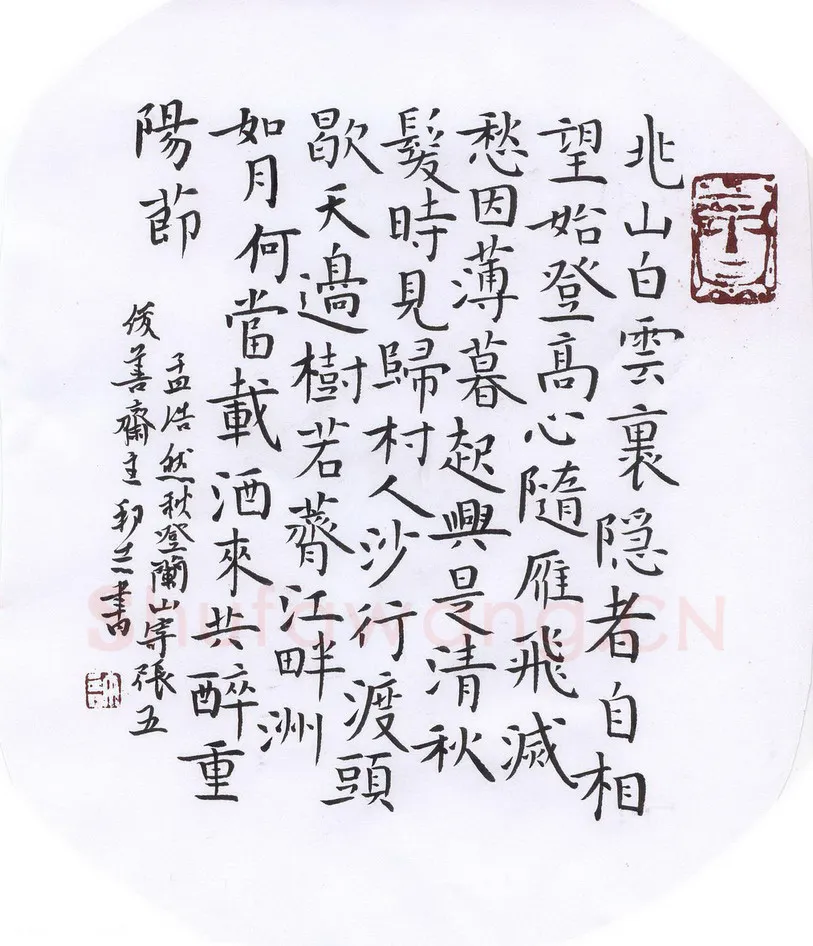 北山白雲裏隐者自相
望始登高心隨雁飛滅
愁因薄暮起興是清秋
髮時見歸村人沙行渡頭
歇天邊樹若薺江畔洲
如月何當載酒來共醉重
陽節
孟浩然秋登蘭山寄張五
善齋主書
Shufawang.CN